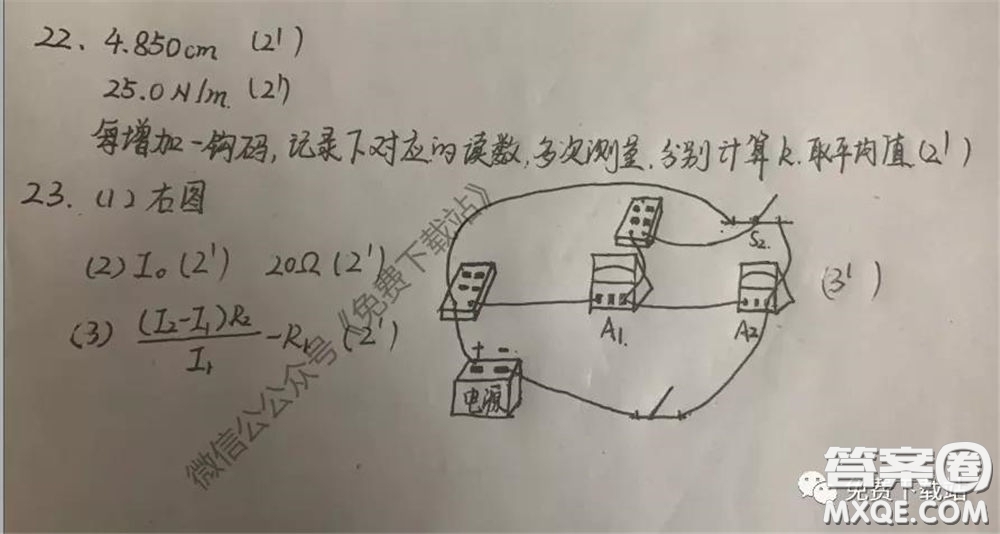 22. 4.850cm (2')
25.0 N/m. (2')
每增加一钩码,记录下对应的读数,多次测量.分别计算k.取平均值(2')
23. (1) 右图
(2) I₀ (2') 20Ω (2')
(3) (I₂-I₁)R₂/I₁ -R₁ (2')
S₂.
A₁.
A₂
(3')
+ -
电源
微信公众号《免费下载站》
答案圈
免费下载站
MXQE.COM